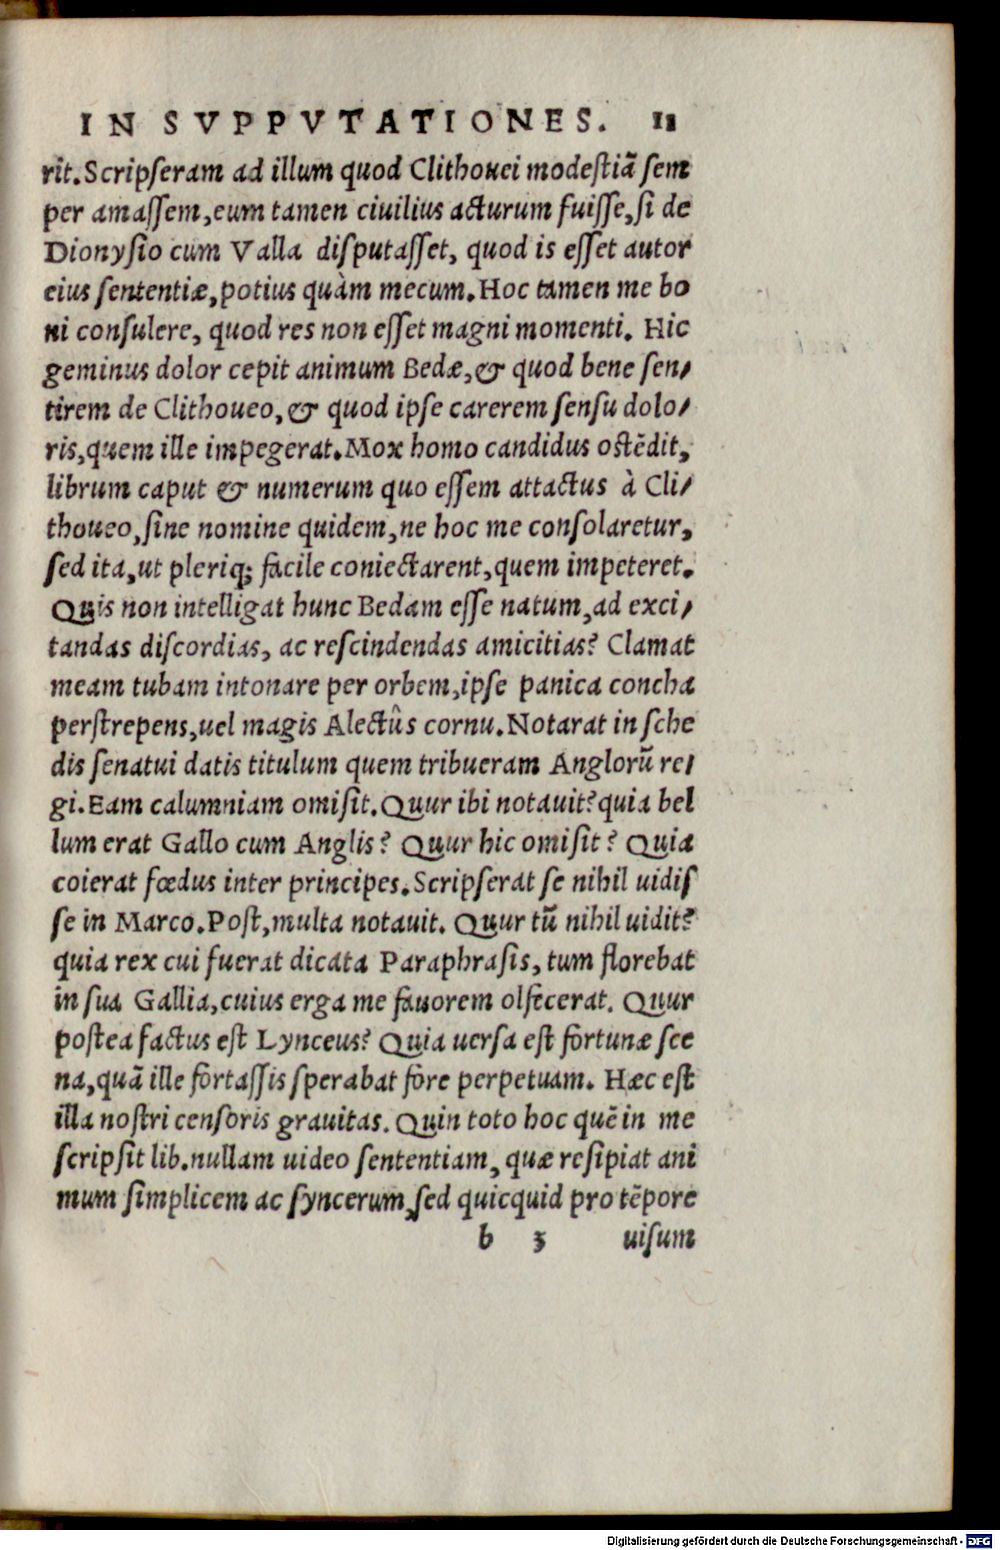 IN SVPPVTATIONES. 11
rit. Scripseram ad illum quod Clithouei modestiã sem
per amassem, eum tamen ciuilius acturum fuisse, si de
Dionysio cum Valla disputasset, quod is esset autor
eius sententiæ, potius quàm mecum. Hoc tamen me bo
ni consulere, quod res non esset magni momenti. Hic
geminus dolor cepit animum Bedæ, & quod bene sen/
tirem de Clithoueo, & quod ipse carerem sensu dolo/
ris, quem ille impegerat. Mox homo candidus ostẽdit,
librum caput & numerum quo essem attactus à Cli/
thoueo, sine nomine quidem, ne hoc me consolaretur,
sed ita, ut pleriq; facile coniectarent, quem impeteret.
Quis non intelligat hunc Bedam esse natum, ad exci/
tandas discordias, ac rescindendas amicitias? Clamat
meam tubam intonare per orbem, ipse panica concha
perstrepens, uel magis Alectûs cornu. Notarat in sche
dis senatui datis titulum quem tribueram Anglorũ re/
gi. Eam calumniam omisit. Quur ibi notauit? quia bel
lum erat Gallo cum Anglis? Quur hic omisit? Quia
coierat fœdus inter principes. Scripserat se nihil uidis
se in Marco. Post, multa notauit. Quur tũ nihil uidit?
quia rex cui fuerat dicata Paraphrasis, tum florebat
in sua Gallia, cuius erga me fauorem olfecerat. Quur
postea factus est Lynceus? Quia uersa est fortunæ sce
na, quã ille fortassis sperabat fore perpetuam. Hæc est
illa nostri censoris grauitas. Quin toto hoc quẽ in me
scripsit lib. nullam uideo sententiam, quæ resipiat ani
mum simplicem ac syncerum, sed quicquid pro tẽpore
b 3 uisum
Digitalisierung gefördert durch die Deutsche Forschungsgemeinschaft - DFG